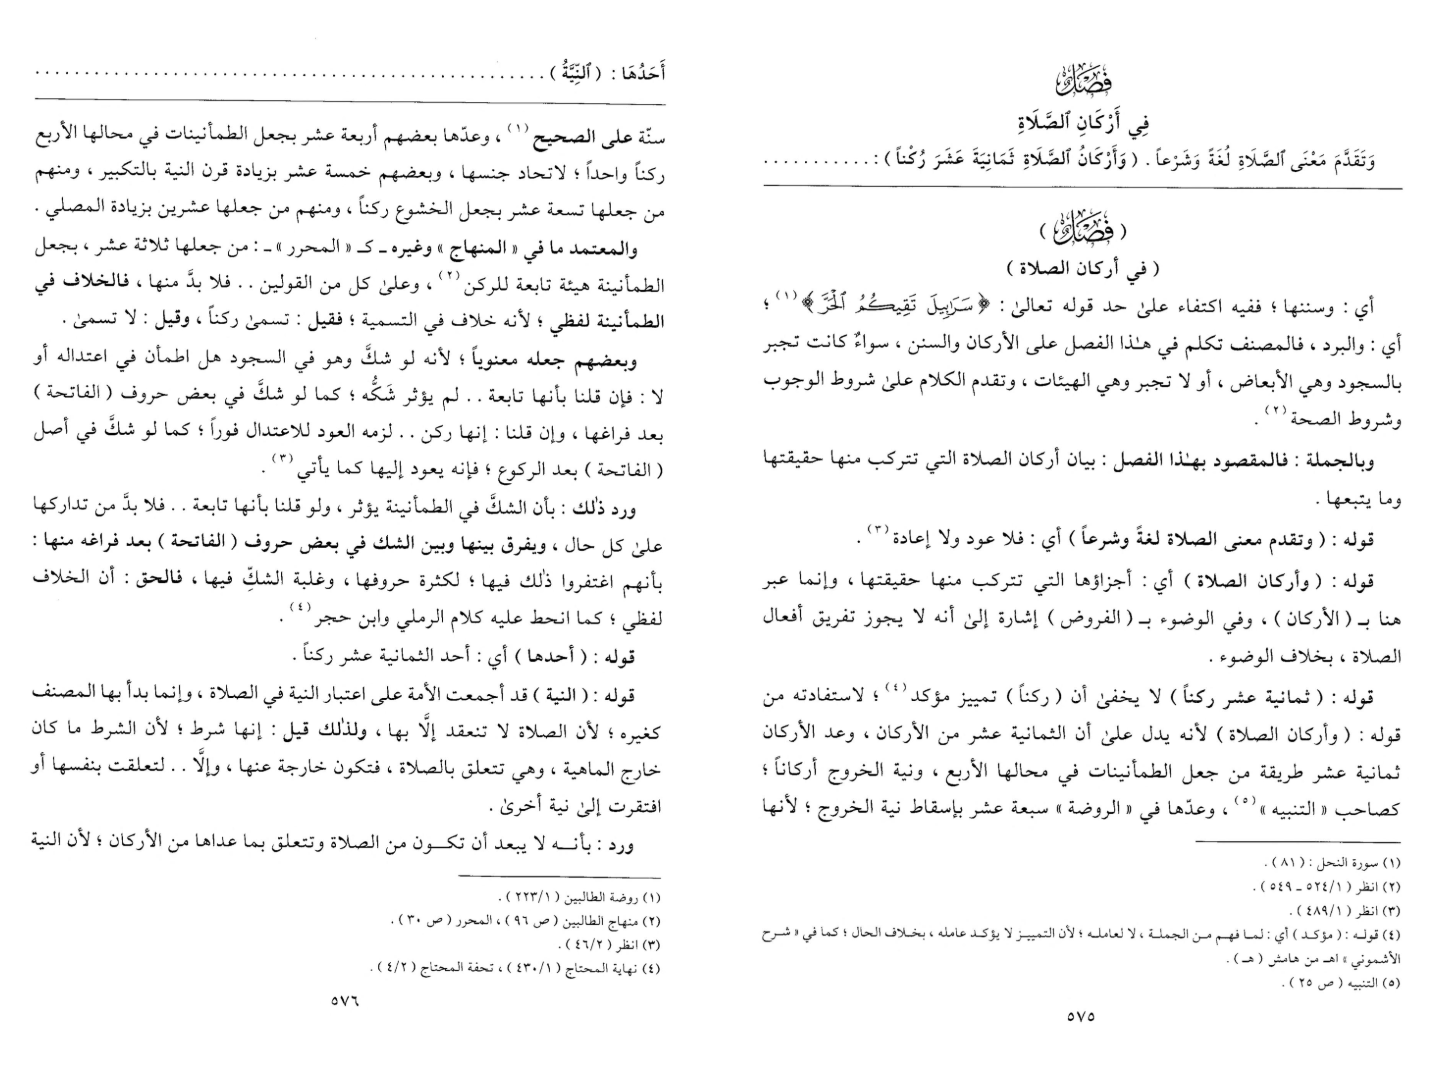 فَصْلٌ
فِي أَرْكَانِ ٱلصَّلَاةِ
وَتَقَدَّمَ مَعْنَى ٱلصَّلَاةِ لُغَةً وَشَرْعاً . ( وَأَرْكَانُ ٱلصَّلَاةِ ثَمَانِيَةَ عَشَرَ رُكْناً ) : ...........
( فَصْلٌ )
( في أركان الصلاة )
أي : وسننها ؛ ففيه اكتفاء علىٰ حد قوله تعالىٰ : ﴿ سَرَٰبِيلَ تَقِيكُمُ ٱلْحَرَّ ﴾(١) ؛
أي : والبرد ، فالمصنف تكلم في هـٰذا الفصل على الأركان والسنن ، سواءٌ كانت تجبر
بالسجود وهي الأبعاض ، أو لا تجبر وهي الهيئات ، وتقدم الكلام علىٰ شروط الوجوب
وشروط الصحة(٢) .
وبالجملة : فالمقصود بهـٰذا الفصل : بيان أركان الصلاة التي تتركب منها حقيقتها
وما يتبعها .
قوله : ( وتقدم معنى الصلاة لغةً وشرعاً ) أي : فلا عود ولا إعادة(٣) .
قوله : ( وأركان الصلاة ) أي : أجزاؤها التي تتركب منها حقيقتها ، وإنما عبر
هنا بـ ( الأركان ) ، وفي الوضوء بـ ( الفروض ) إشارة إلىٰ أنه لا يجوز تفريق أفعال
الصلاة ، بخلاف الوضوء .
قوله : ( ثمانية عشر ركناً ) لا يخفىٰ أن ( ركناً ) تمييز مؤكد(٤) ؛ لاستفادته من
قوله : ( وأركان الصلاة ) لأنه يدل علىٰ أن الثمانية عشر من الأركان ، وعد الأركان
ثمانية عشر طريقة من جعل الطمأنينات في محالها الأربع ، ونية الخروج أركاناً ؛
كصاحب « التنبيه »(٥) ، وعدّها في « الروضة » سبعة عشر بإسقاط نية الخروج ؛ لأنها
(١) سورة النحل : ( ٨١ ) .
(٢) انظر ( ١/ ٥٢٤ ـ ٥٤٩ ) .
(٣) انظر ( ١/ ٤٨٩ ) .
(٤) قوله : ( مؤكد ) أي : لما فهم من الجملة ، لا لعامله ؛ لأن التمييز لا يؤكد عامله ، بخلاف الحال ؛ كما في « شرح
الأشموني » اهـ من هامش ( هـ ) .
(٥) التنبيه ( ص ٢٥ ) .
٥٧٥
أَحَدُهَا : ( ٱلنِّيَّةُ ) ....................................................
سنّة على الصحيح(١) ، وعدّها بعضهم أربعة عشر بجعل الطمأنينات في محالها الأربع
ركناً واحداً ؛ لاتحاد جنسها ، وبعضهم خمسة عشر بزيادة قرن النية بالتكبير ، ومنهم
من جعلها تسعة عشر بجعل الخشوع ركناً ، ومنهم من جعلها عشرين بزيادة المصلي .
والمعتمد ما في « المنهاج » وغيره ـ كـ « المحرر » ـ : من جعلها ثلاثة عشر ، بجعل
الطمأنينة هيئة تابعة للركن(٢) ، وعلىٰ كل من القولين . . فلا بدَّ منها ، فالخلاف في
الطمأنينة لفظي ؛ لأنه خلاف في التسمية ؛ فقيل : تسمىٰ ركناً ، وقيل : لا تسمىٰ .
وبعضهم جعله معنوياً ؛ لأنه لو شكَّ وهو في السجود هل اطمأن في اعتداله أو
لا : فإن قلنا بأنها تابعة . . لم يؤثر شَكُّه ؛ كما لو شكَّ في بعض حروف ( الفاتحة )
بعد فراغها ، وإن قلنا : إنها ركن . . لزمه العود للاعتدال فوراً ؛ كما لو شكَّ في أصل
( الفاتحة ) بعد الركوع ؛ فإنه يعود إليها كما يأتي(٣) .
ورد ذٰلك : بأن الشكَّ في الطمأنينة يؤثر ، ولو قلنا بأنها تابعة . . فلا بدَّ من تداركها
علىٰ كل حال ، ويفرق بينها وبين الشك في بعض حروف ( الفاتحة ) بعد فراغه منها :
بأنهم اغتفروا ذٰلك فيها ؛ لكثرة حروفها ، وغلبة الشكِّ فيها ، فالحق : أن الخلاف
لفظي ؛ كما انحط عليه كلام الرملي وابن حجر(٤) .
قوله : ( أحدها ) أي : أحد الثمانية عشر ركناً .
قوله : ( النية ) قد أجمعت الأمة على اعتبار النية في الصلاة ، وإنما بدأ بها المصنف
كغيره ؛ لأن الصلاة لا تنعقد إلَّا بها ، ولذٰلك قيل : إنها شرط ؛ لأن الشرط ما كان
خارج الماهية ، وهي تتعلق بالصلاة ، فتكون خارجة عنها ، وإلَّا . . لتعلقت بنفسها أو
افتقرت إلىٰ نية أخرىٰ .
ورد : بأنه لا يبعد أن تكون من الصلاة وتتعلق بما عداها من الأركان ؛ لأن النية
(١) روضة الطالبين ( ١/ ٢٢٣ ) .
(٢) منهاج الطالبين ( ص ٩٦ ) ، المحرر ( ص ٣٠ ) .
(٣) انظر ( ٢/ ٤٦ ) .
(٤) نهاية المحتاج ( ١/ ٤٣٠ ) ، تحفة المحتاج ( ٢/ ٤ ) .
٥٧٦